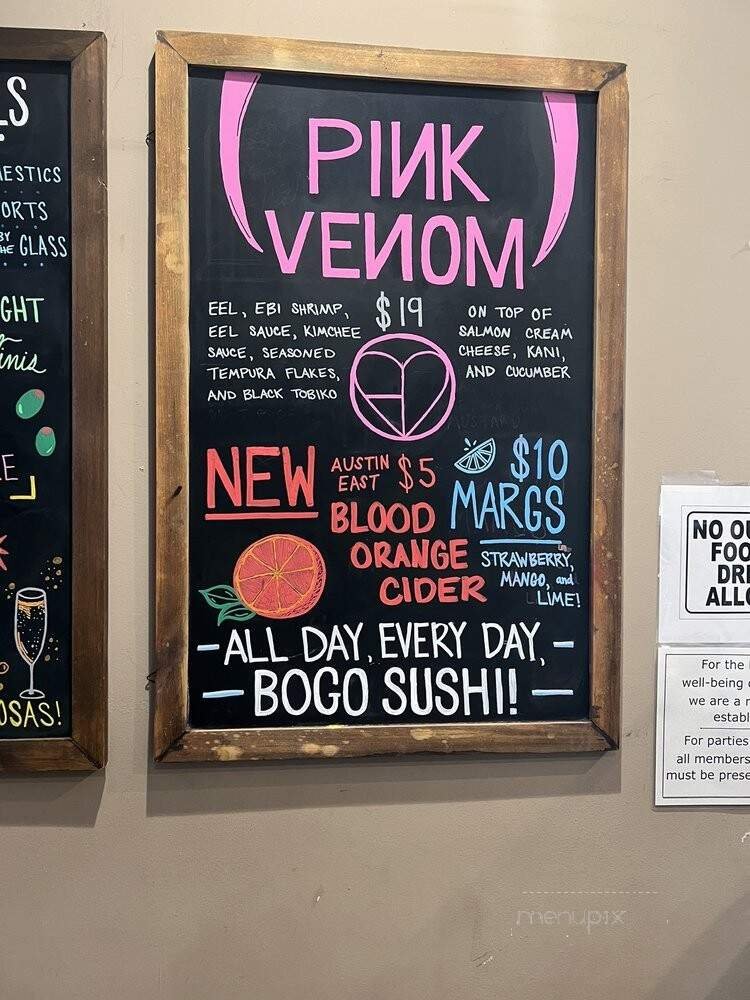 LS
ESTICS
ORTS
BY THE GLASS
GHT
inis
E
OSAS!
PINK
VENOM
$19
EEL, EBI SHRIMP,
EEL SAUCE, KIMCHEE
SAUCE, SEASONED
TEMPURA FLAKES,
AND BLACK TOBIKO
ON TOP OF
SALMON CREAM
CHEESE, KANI,
AND CUCUMBER
NEW
AUSTIN
EAST $5
BLOOD
ORANGE
CIDER
$10
MARGS
STRAWBERRY,
MANGO, and
LIME!
-ALL DAY, EVERY DAY,-
-BOGO SUSHI!-
NO OU
FOO
DRI
ALLO
For the
well-being
we are a
establ
For parties
all members
must be prese
menupix